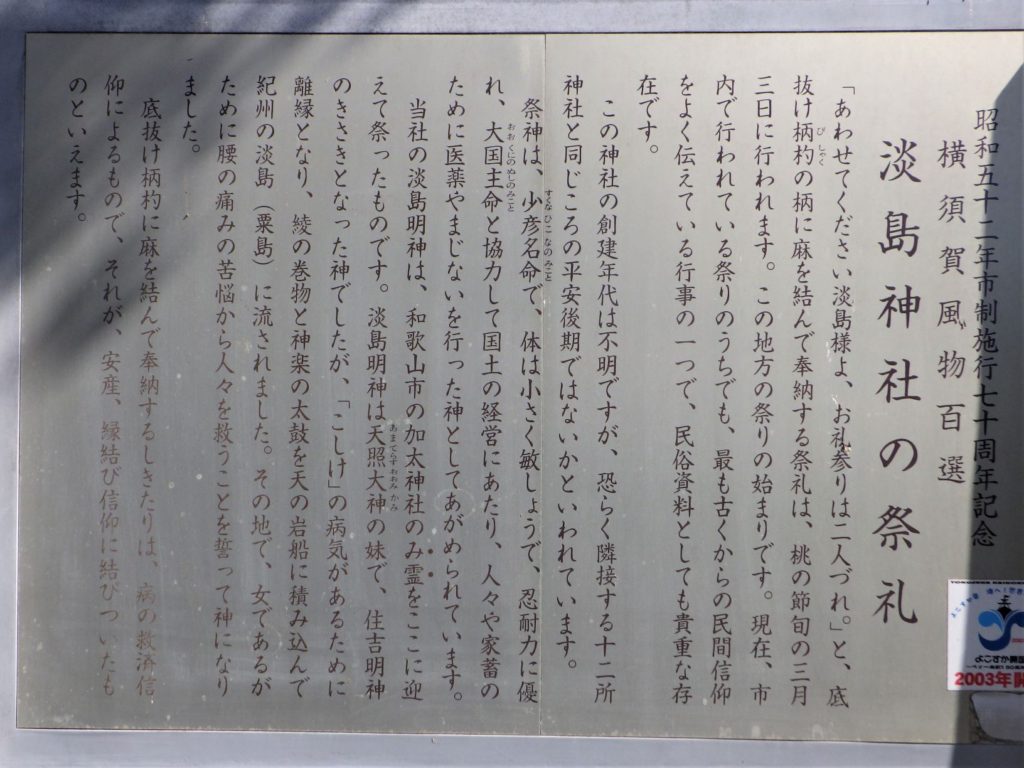 昭和五十二年市制施行七十周年記念
横須賀風物百選
淡島神社の祭礼
「あわせてください淡島様よ、お礼参りは二人づれ。」と、底
抜け柄杓の柄に麻を結んで奉納する祭礼は、桃の節旬の三月
三日に行われます。この地方の祭りの始まりです。現在、市
内で行われている祭りのうちでも、最も古くからの民間信仰
をよく伝えている行事の一つで、民俗資料としても貴重な存
在です。
この神社の創建年代は不明ですが、恐らく隣接する十二所
神社と同じころの平安後期ではないかといわれています。
祭神は、少彦名命で、体は小さく敏しょうで、忍耐力に優
れ、大国主命と協力して国土の経営にあたり、人々や家蓄の
ために医薬やまじないを行った神としてあがめられています。
当社の淡島明神は、和歌山市の加太神社のみ霊をここに迎
えて祭ったものです。淡島明神は天照大神の妹で、住吉明神
のきさきとなった神でしたが、「こしけ」の病気があるために
離縁となり、綾の巻物と神楽の太鼓を天の岩船に積み込んで
紀州の淡島（粟島）に流されました。その地で、女であるが
ために腰の痛みの苦悩から人々を救うことを誓って神になり
ました。
底抜け柄杓に麻を結んで奉納するしきたりは、病の救済信
仰によるもので、それが、安産、縁結び信仰に結びついたも
のといえます。
よこすか開国
2003年開